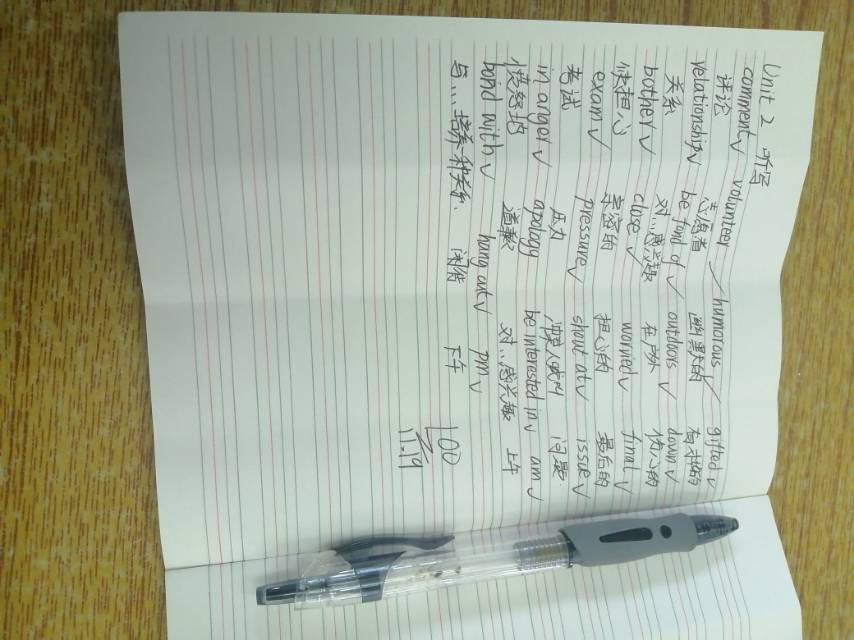 Unit 2 听写
comment√ volunteer√ humorous√ gifted√
评论 志愿者 幽默的 有才的
relationship√ be fond of√ outdoors√ down√
关系 对...感兴趣 在户外 伤心的
bother√ close√ worried√ final√
使担心 亲密的 担心的 最后的
exam√ pressure√ shout at√ issue√
考试 压力 冲某人喊叫 问题
in anger√ apology be interested in√ am√
愤怒地 道歉 对...感兴趣 上午
bond with√ hang out√ pm√
与...培养一种关系. 闲逛 下午
100
11.19